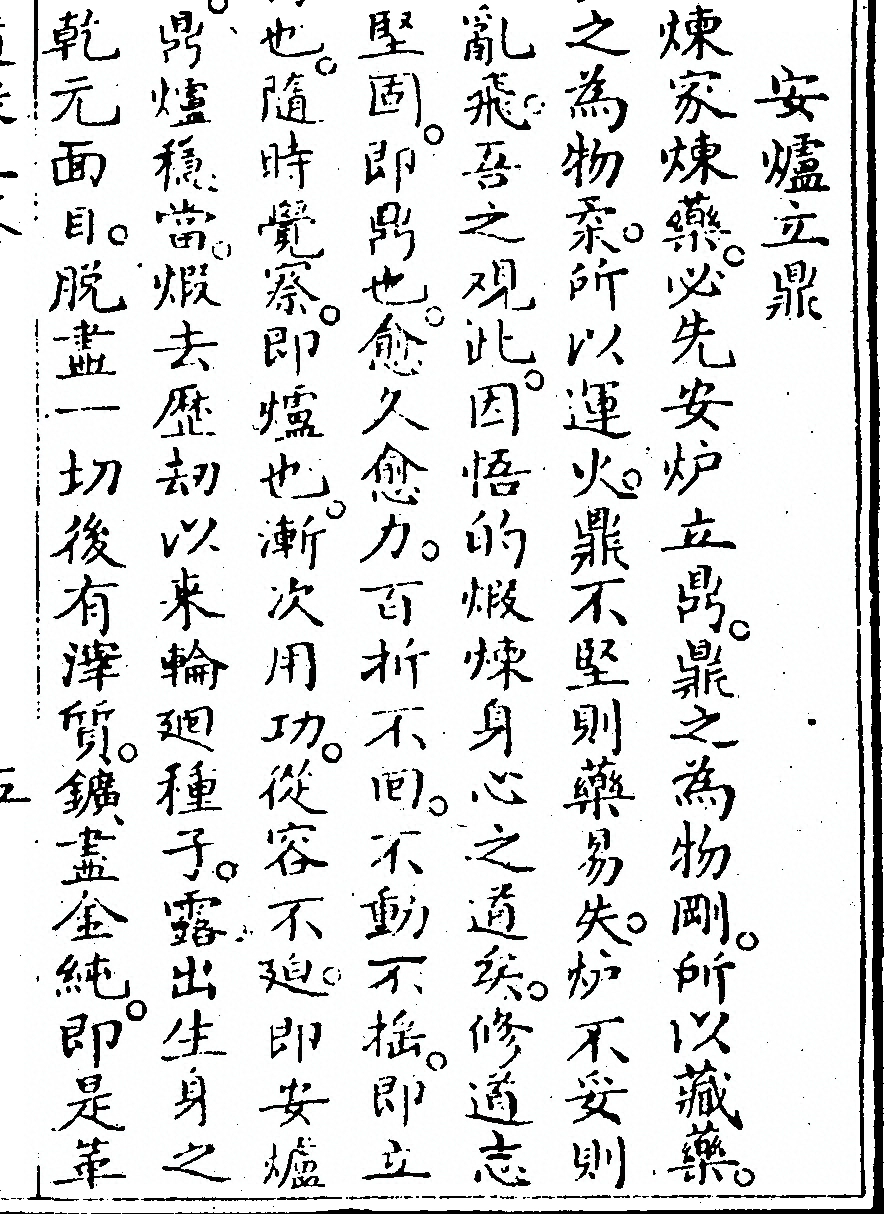 安爐立鼎
煉家煉藥。必先安炉立鼎。鼎之為物剛。所以藏藥。
之為物柔。所以運火。鼎不堅則藥易失。炉不妥則
亂飛。吾之观此。因悟的煅煉身心之道矣。修道志
堅固。即鼎也。愈久愈力。百折不囘。不動不搖。即立
也。隨時覺察。即爐也。漸次用功。從容不廹。即安爐
鼎爐穩當。煅去歴劫以来輪廻種子。露出生身之
乾元面目。脱盡一切後有滓質。鑛盡金純。即是革